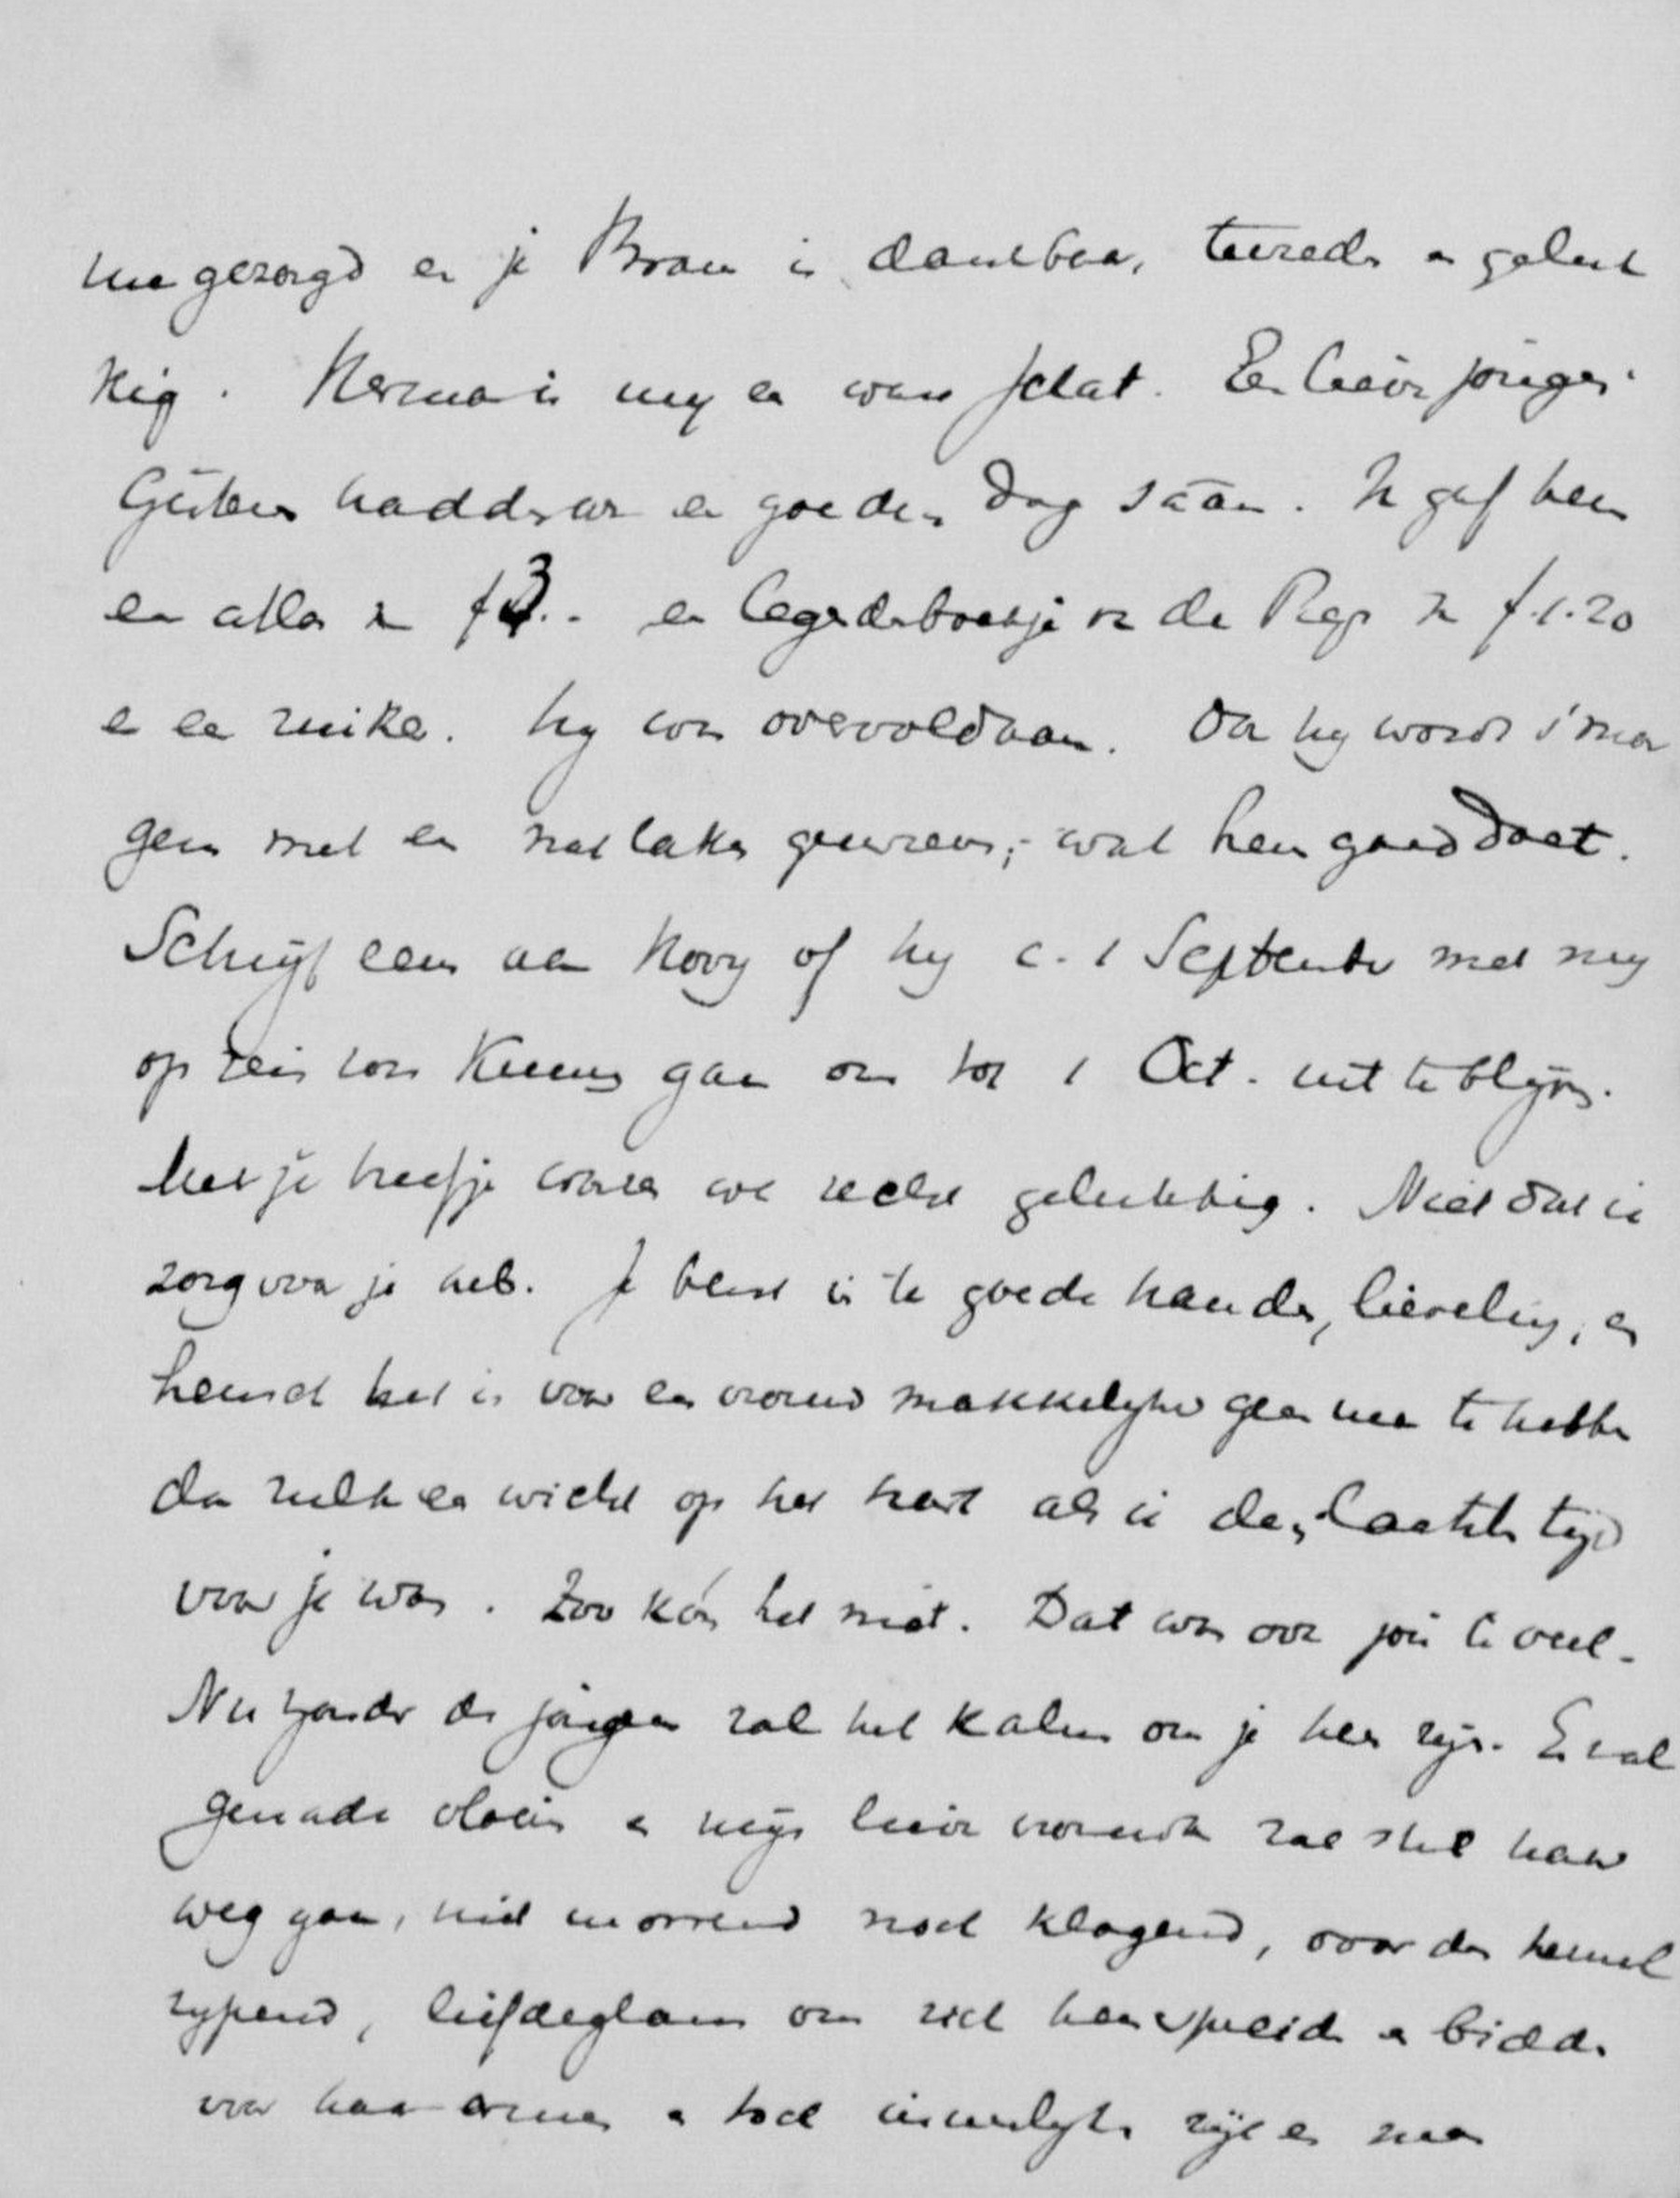 me gezorgd en je Bram is dankbaar, tevreden en geluk
kig. Herman is mij een ware schat. Een lieve jongen.
Gisteren hadden we een goeden dag saam. Ik gaf hem
een atlas van f 3.- een legendenboekje van de Rep van f. 1.20
en een  Hij was overvoldaan. Oa hij wordt 's mor
gens met een nat laken gewreven; wat hem goed doet.
Schrijf eens aan Harry of hij c. 1 September met mij
op reis zou kunnen gaan om tot 1 Oct. uit te blijven.
Met je briefje waren we recht gelukkig. Niet dat ik
zorg voor je heb. Je bent in te goede handen, lieveling, en
heusch het is voor een vrouw makkelijker geen man te hebben
dan zulk een wicht op het hart als ik den laatsten tijd
voor je was. Zoo kón het niet. Dat was voor jou te veel.
Nu zonder de jongen zal het kalm om je heen zijn. Er zal
genade vloeien en mijn lieve vrouwtje zal stil haar
weg gaan, niet morrend noch klagend, voor den hemel
rijpend, liefdeglans om zich heen spreidend en biddend
voor haar armen en toch innerlijk rijken man